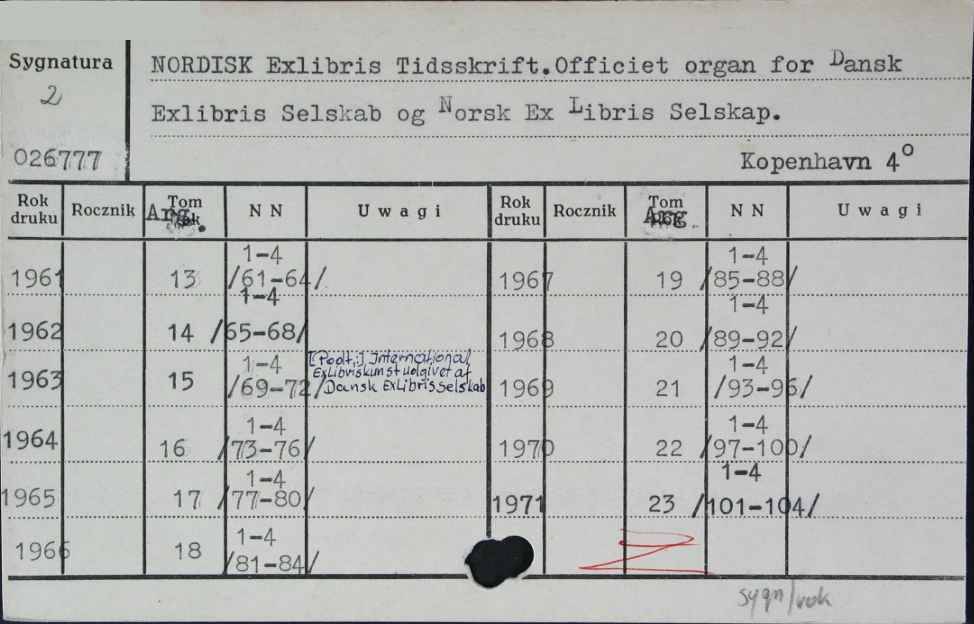 Sygnatura
2
026777
NORDISK Exlibris Tidsskrift.Officiet organ for Dansk
Exlibris Selskab og Norsk Ex Libris Selskap.
Kopenhavn 4º
Rok druku Rocznik Tom Arg. N N Uwagi Rok druku Rocznik Tom Arg. N N Uwagi
1961 13 1-4 /61-64/ 1967 19 1-4 /85-88/
1962 14 1-4 /65-68/ 1968 20 1-4 /89-92/
1963 15 1-4 /69-72/ [Podt.:] International Exlibriskunst udgivet af Dansk Exlibris Selskab 1969 21 1-4 /93-96/
1964 16 1-4 /73-76/ 1970 22 1-4 /97-100/
1965 17 1-4 /77-80/ 1971 23 1-4 /101-104/
1966 18 1-4 /81-84/
sygn/rok